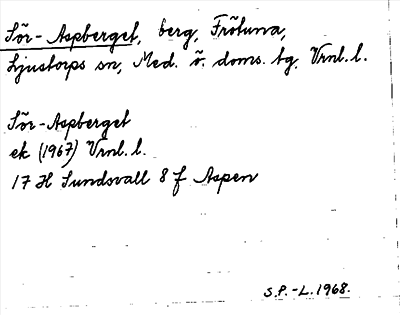 Sör-Aspberget, berg, Frötuna,
Ljustorps sn, Med. ö. doms. tg. Vrnl. l.
Sör-Aspberget
ek (1967) Vrnl. l.
17 H Sundsvall 8 f Aspen
S.P.-L. 1968.